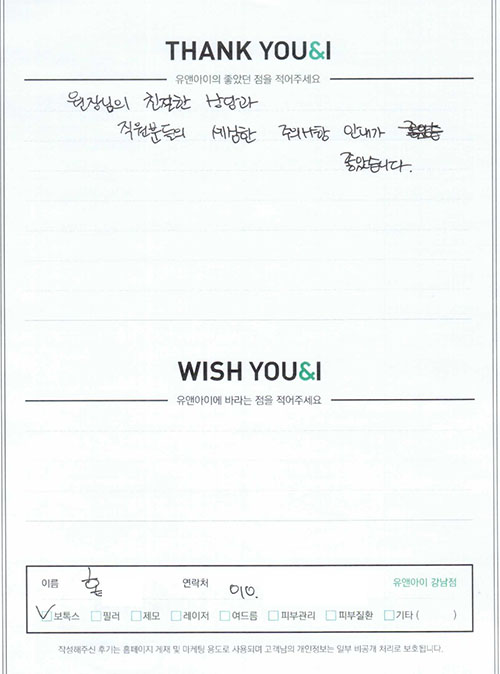 THANK YOU&I
유앤아이의 좋았던 점을 적어주세요
원장님의 친절한 상담과
직원분들의 세심한 주의사항 안내가
좋았습니다.
WISH YOU&I
유앤아이에 바라는 점을 적어주세요
이름 홍 연락처 010. 유앤아이 강남점
보톡스 필러 제모 레이저 여드름 피부관리 피부질환 기타 ( )
작성해주신 후기는 홈페이지 게재 및 마케팅 용도로 사용되며 고객님의 개인정보는 일부 비공개 처리로 보호됩니다.